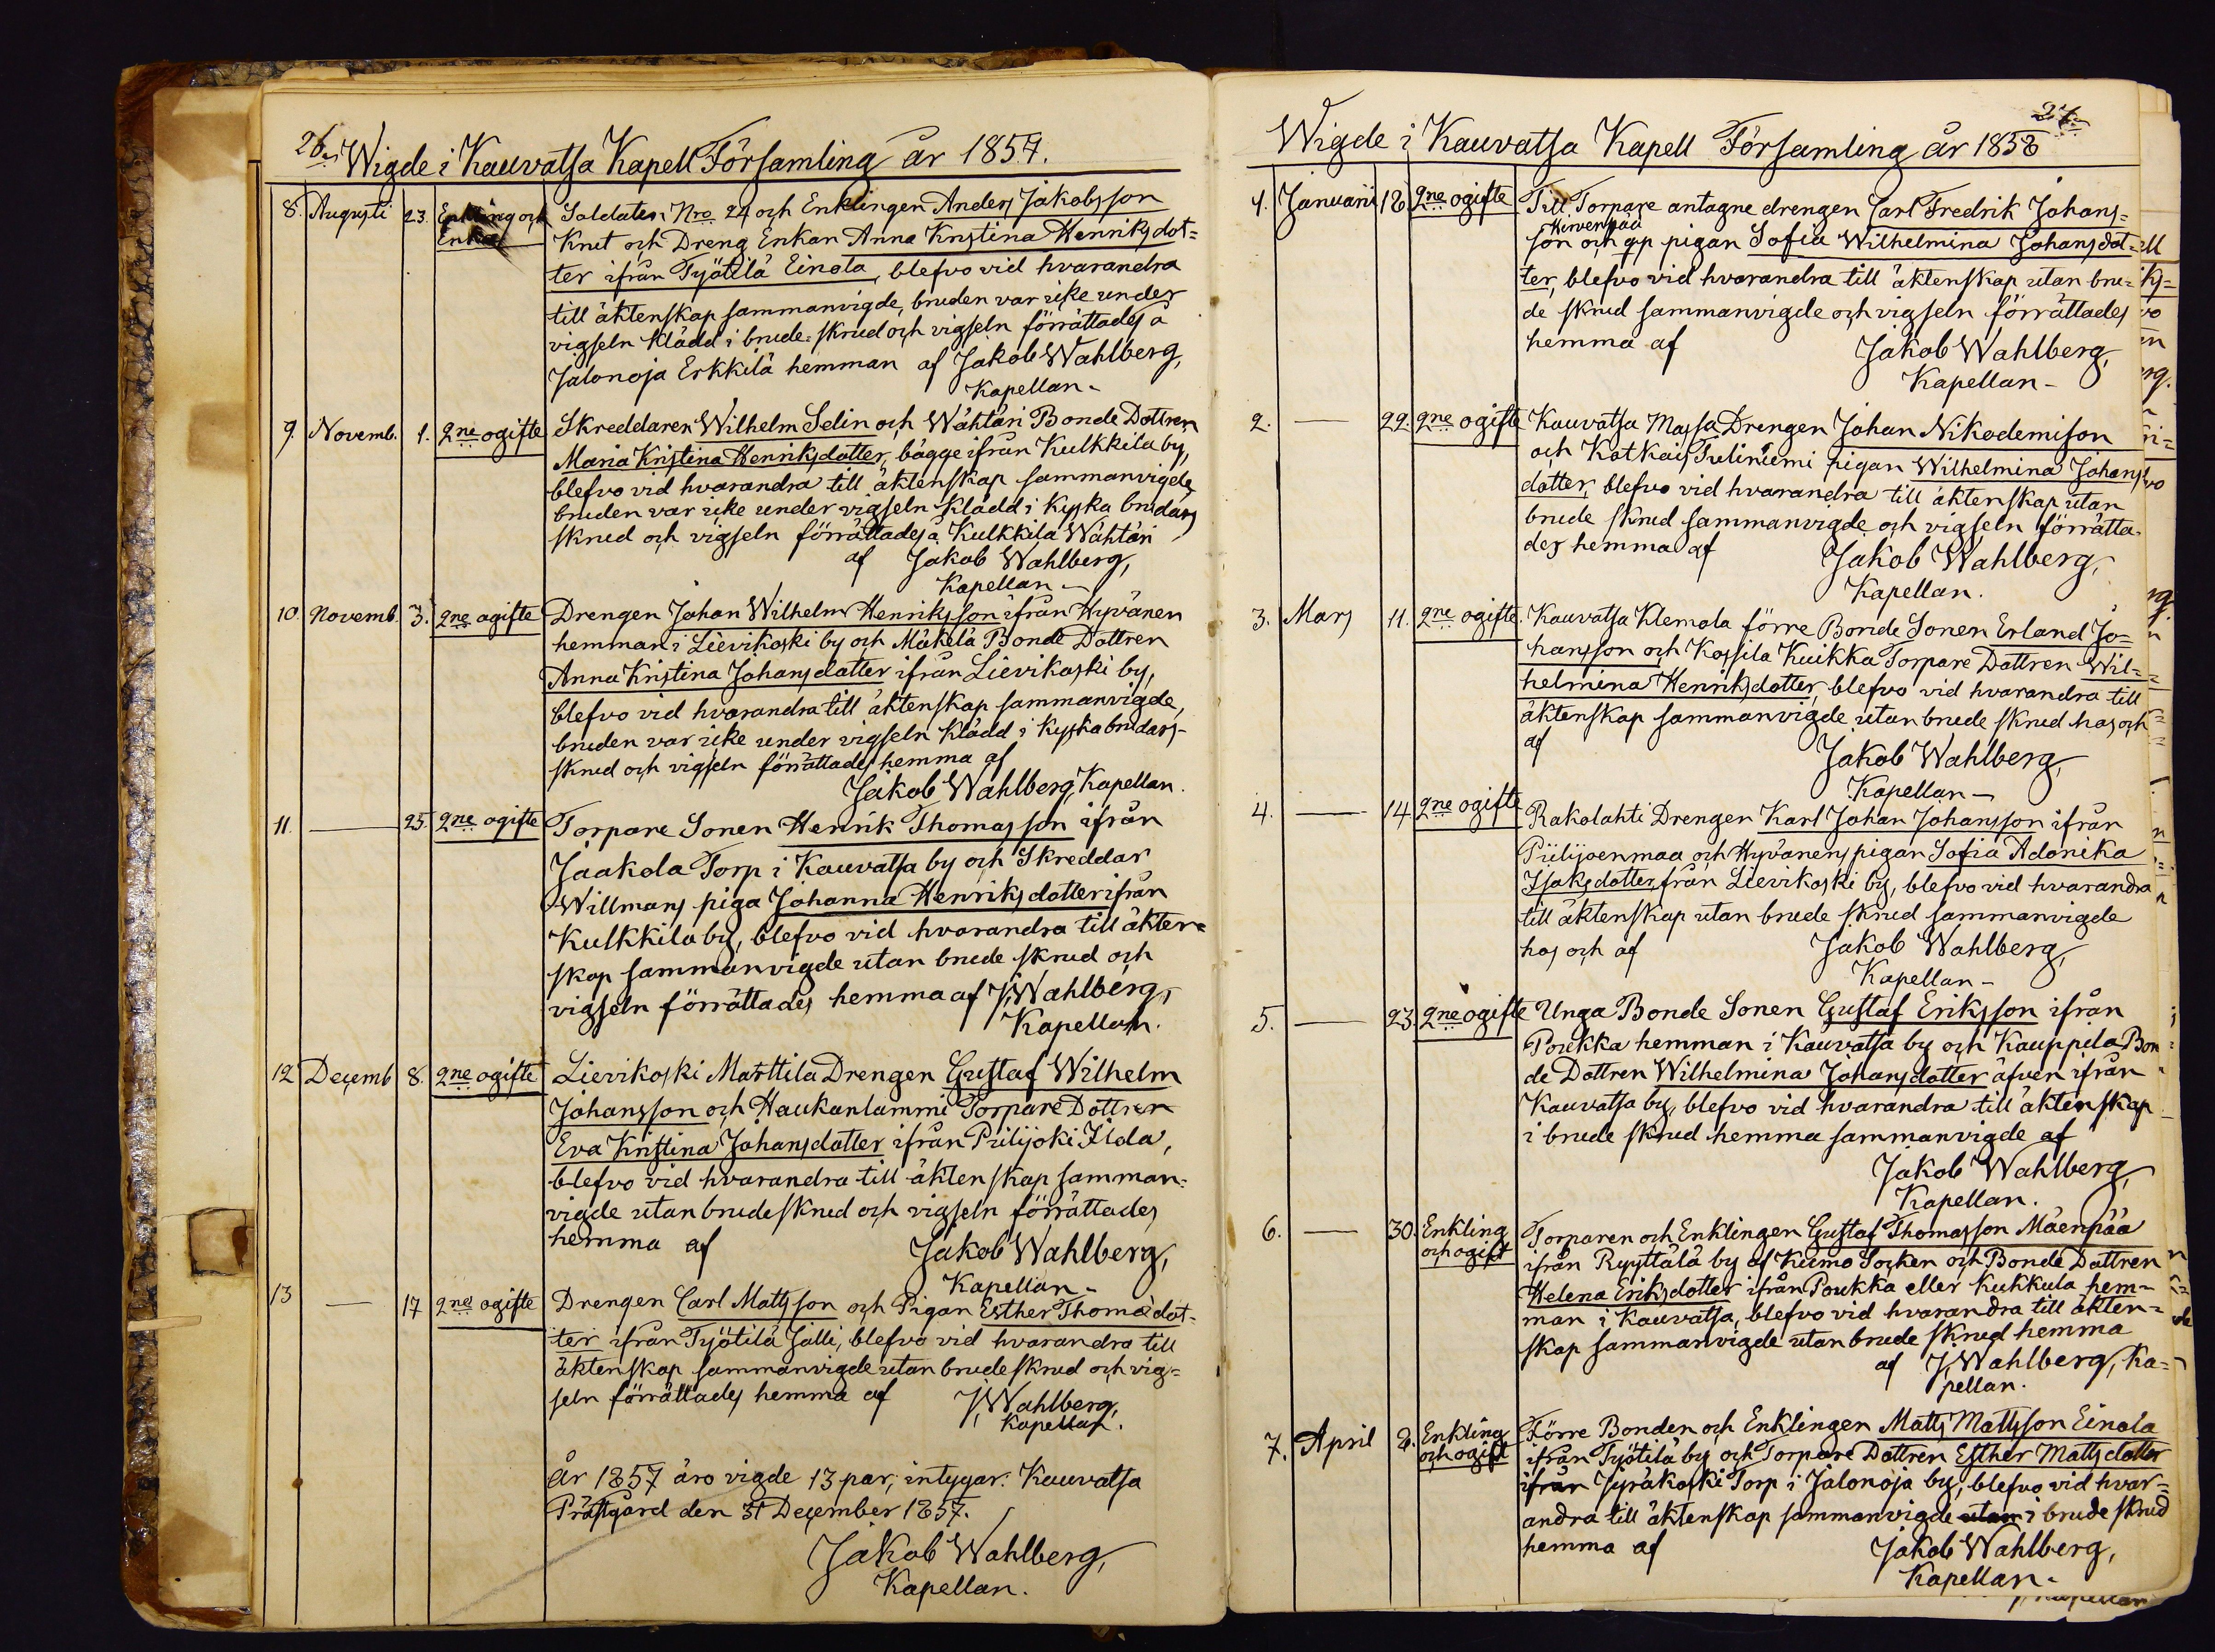 26. Wigde i Kauvatsa Kapell Församling år 1857.
8. Augusti 23. Enkling och Enka
Soldaten Nro 24 och Enklingen Anders Jakobsson
Knut och Dreng Enkan Anna Kristina Henriksdot=
ter ifrån Työtilä Einola, blefvo vid hvarandra
till äktenskap sammanvigde, bruden var icke under
vigseln klädd i brude-skrud och vigseln förrättades å
Jalonoja Erkkilä hemman af Jakob Wahlberg,
Kapellan.
9. Novemb. 1. 2ne ogifte
Skreddaren Wilhelm Selin och Wähtäri Bonde Dottren
Maria Kristina Henriksdotter, bägge ifrån Kulkkila by,
blefvo vid hvarandra till äktenskap sammanvigde,
bruden var icke under vigseln klädd i kyska brudars
skrud och vigseln förrättades å Kulkkila Wähtäri
af Jakob Wahlberg,
Kapellan.
10. Novemb. 3. 2ne ogifte
Drengen Johan Wilhelm Henriksson ifrån Hyvänen
hemman i Lievikoski by och Mäkelä Bonde Dottren
Anna Kristina Johansdotter ifrån Lievikoski by,
blefvo vid hvarandra till äktenskap sammanvigde,
bruden var icke under vigseln klädd i kyska brudars-
skrud och vigseln förrättades hemma af
Jakob Wahlberg, Kapellan.
11. — 25. 2ne ogifte
Torpare Sonen Henrik Thomasson ifrån
Jaakola Torp i Kauvatsa by och Skreddar
Willmans piga Johanna Henriksdotter ifrån
Kulkkila by, blefvo vid hvarandra till äkten=
skap sammanvigde utan brude skrud och
vigseln förrättades hemma af J. Wahlberg,
Kapellan.
12 Decemb 8. 2ne ogifte
Lievikoski Marttila Drengen Gustaf Wilhelm
Johansson och Haukanlammi Torpare Dottren
Eva Kristina Johansdotter ifrån Piilijoki Jlda,
blefvo vid hvarandra till äktenskap samman=
vigde utan brude skrud och vigseln förrättades
hemma af Jakob Wahlberg,
Kapellan.
13 — 17 2ne ogifte
Drengen Carl Mattsson och Pigan Esther Thomædot-
ter ifrån Työtilä Jalli, blefvo vid hvarandra till
äktenskap sammanvigde utan brude skrud och vig=
seln förrättades hemma af J. Wahlberg,
Kapellan.
År 1857 äro vigde 13 par, intygar: Kauvatsa
Prästgård den 31 December 1857.
Jakob Wahlberg,
Kapellan.
27.
Wigde i Kauvatsa Kapell Församling år 1858
1. Januarii 18 2ne ogifte
Till Torpare antagne drengen Carl Fredrik Johans=
Hirvenpää
son och pigan Sofia Wilhelmina Johansdot-
ter, blefvo vid hvarandra till äktenskap utan bru=
de skrud sammanvigde och vigseln förrättades
hemma af Jakob Wahlberg,
Kapellan.
2. — 22. 2ne ogifte
Kauvatsa Massa Drengen Johan Nikodemison
och Kotkais Tuliniemi pigan Wilhelmina Johans
dotter, blefvo vid hvarandra till äktenskap utan
brude skrud sammanvigde och vigseln förrätta-
des hemma af Jakob Wahlberg,
Kapellan.
3. Mars 11. 2ne ogifte.
Kauvatsa Klemola förre Bonde Sonen Erland Jo=
hansson och Kossila Kuikka Torpare Dottren Wil=
helmina Henriksdotter, blefvo vid hvarandra till
äktenskap sammanvigde utan brude skrud hos och
af Jakob Wahlberg,
Kapellan
4. — 14 2ne ogifte
Rakolahti Drengen Karl Johan Johansson ifrån
Piilijoenmaa och Hyvänens pigan Sofia Adonika
Isaksdotter från Lievikoski by, blefvo vid hvarandra
till äktenskap utan brude skrud sammanvigde
hos och af Jakob Wahlberg,
Kapellan
5. — 23. 2ne ogifte
Unga Bonde Sonen Gustaf Eriksson ifrån
Poukka hemman i Kauvatsa by och Kauppila Bon
de Dottren Wilhelmina Johansdotter äfven ifrån
Kauvatsa by, blefvo vid hvarandra till äktenskap
i brude skrud hemma sammanvigde af
Jakob Wahlberg,
Kapellan.
6. — 30. Enkling och ogift
Torparen och Enklingen Gustaf Thomasson Mäenpää
ifrån Ryyttälä by af Kumo Socken och Bonde Dottren
Helena Eriksdotter ifrån Poukka eller Kukkula hem-
man i Kauvatsa, blefvo vid hvarandra till äkten=
skap sammanvigde utan brude skrud hemma
af J. Wahlberg, Ka=
pellan.
7. April 2. Enkling och ogift
Förre Bonden och Enklingen Matts Mattsson Einola
ifrån Työtilä by och Torpare Dottren Esther Mattsdotter
ifrån Jyräkoski Torp i Jalonoja by, blefvo vid hvar=
andra till äktenskap sammanvigde utan i brude skrud
hemma af Jakob Wahlberg,
Kapellan.